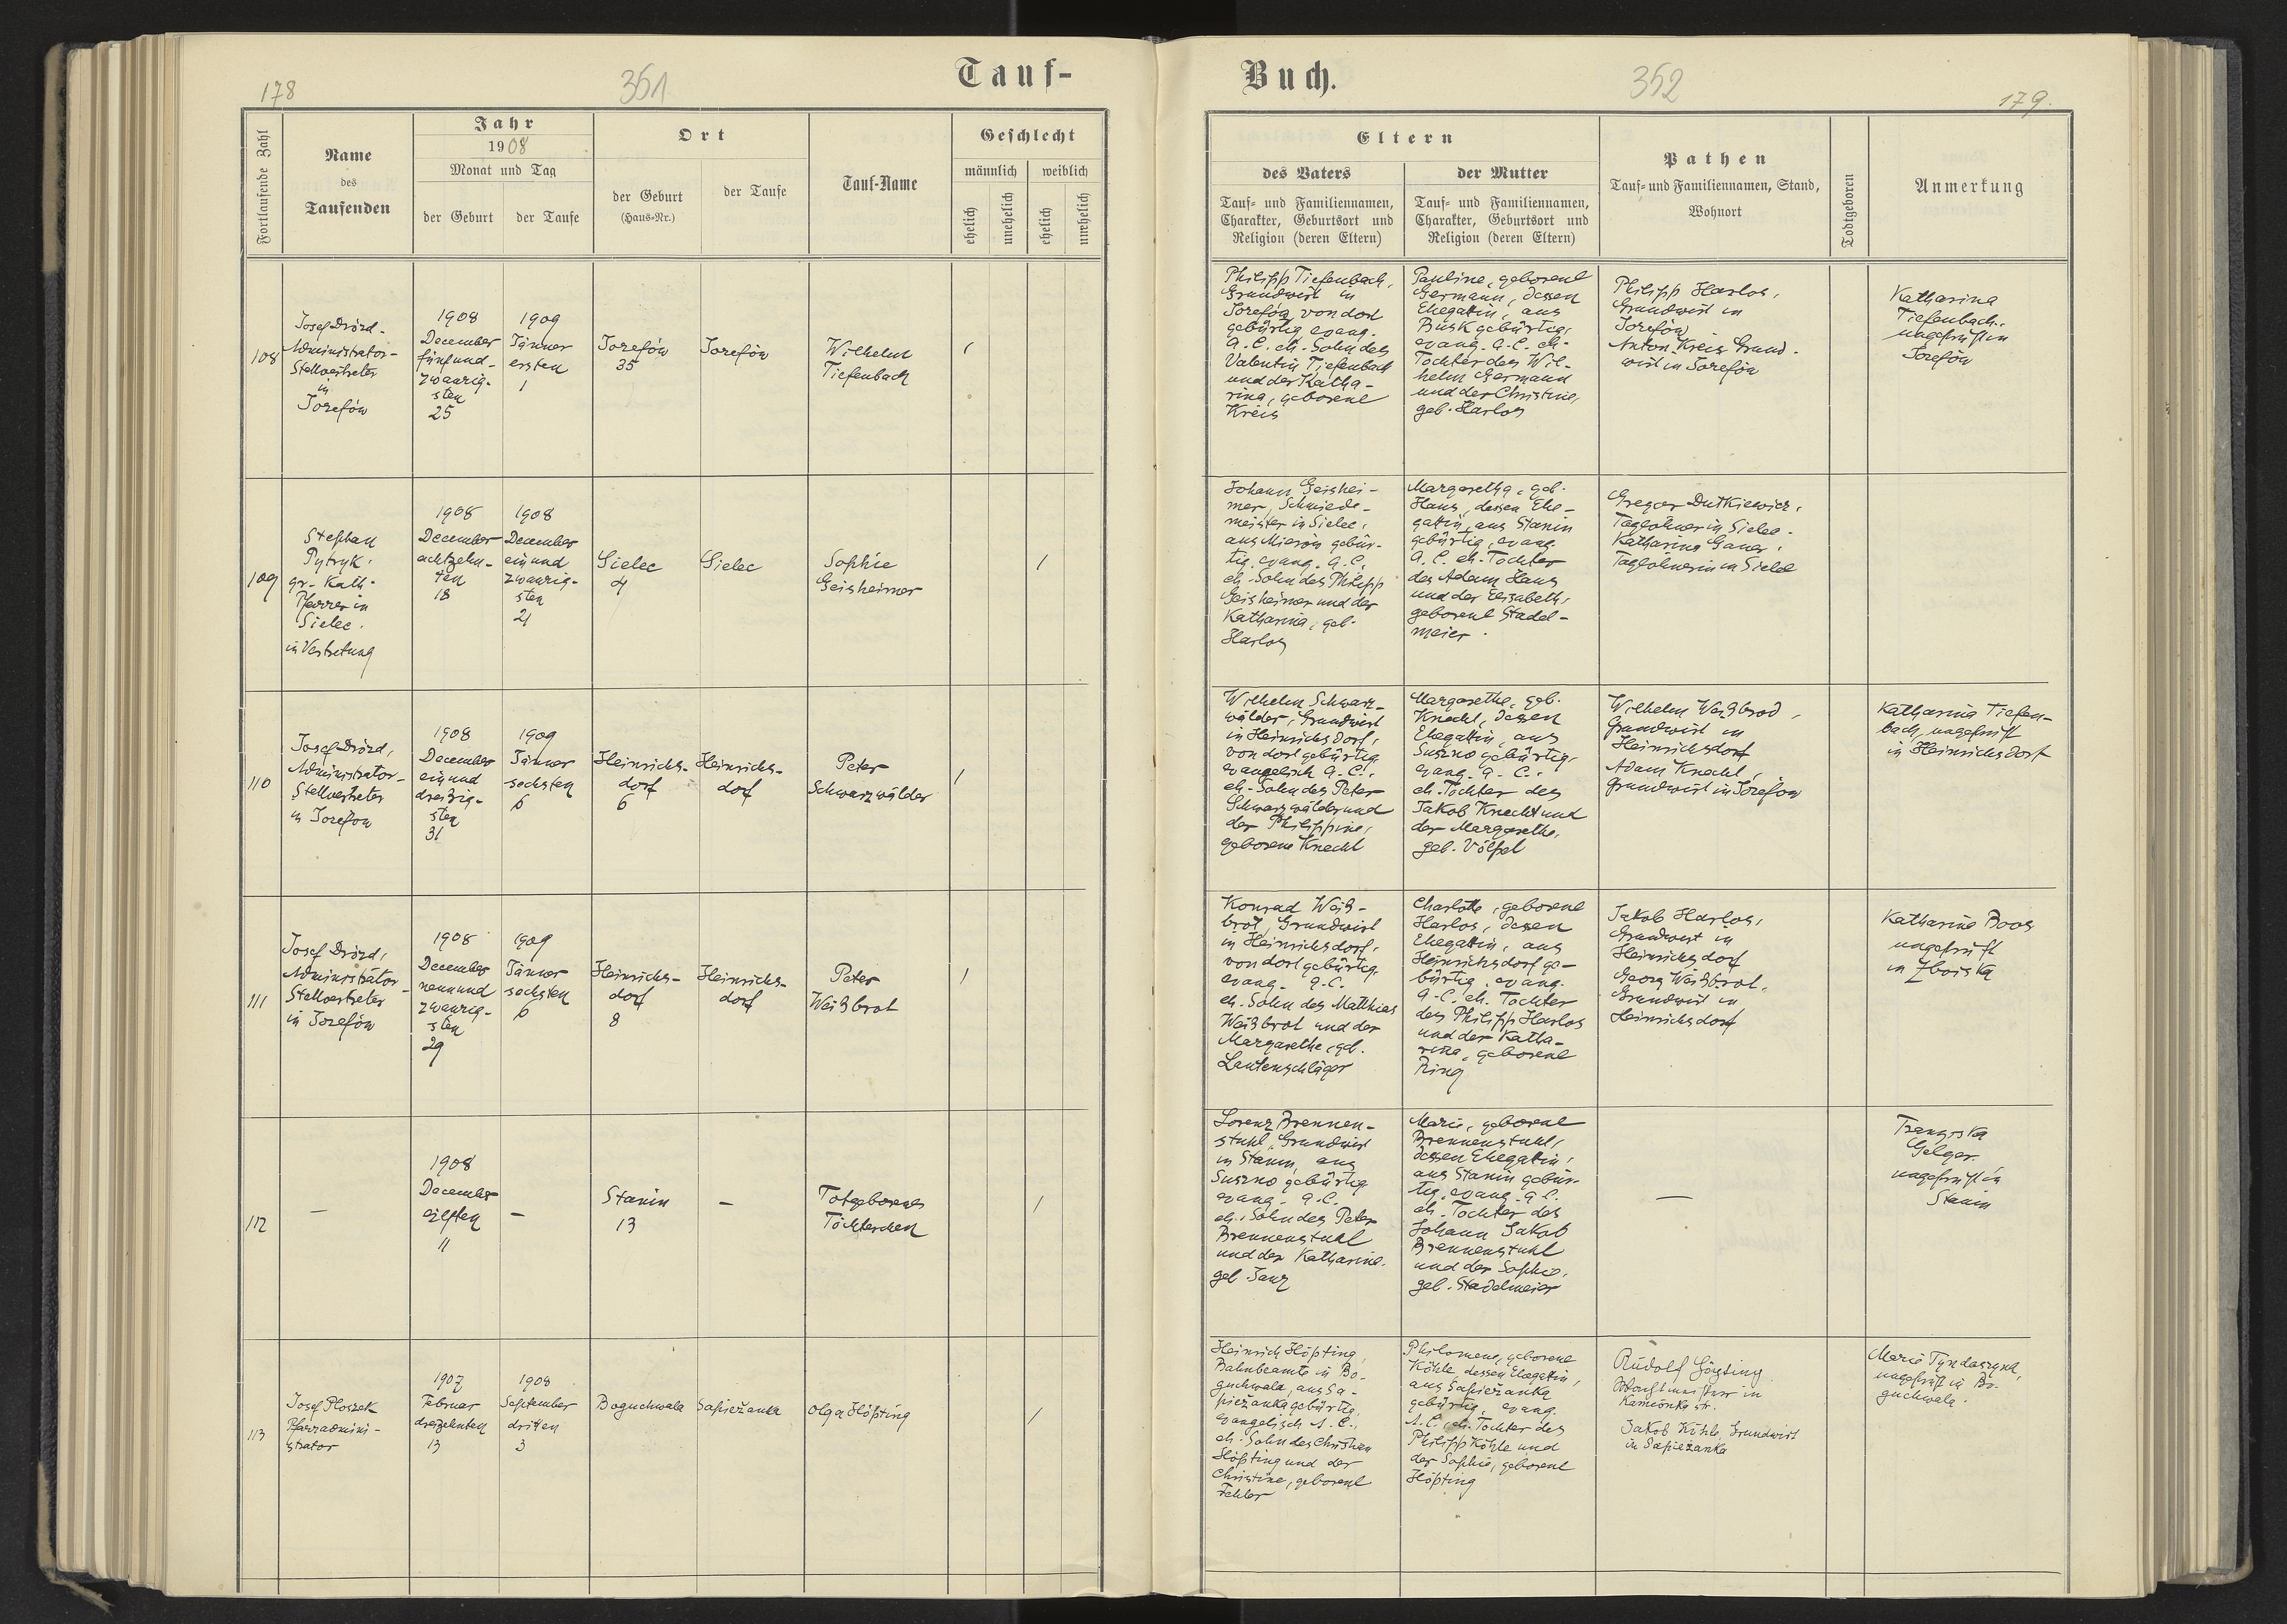 178
351
Tauf-
Fortlaufende Zahl
Name
des
Taufenden
Jahr
1908
Monat und Tag
der Geburt
der Taufe
Ort
der Geburt
(Haus-Nr.)
der Taufe
Tauf-Name
Geschlecht
männlich
weiblich
ehelich
unehelich
ehelich
unehelich
108
Josef Drózd.
Administrator-
Stellvertreter
in
Josefów
1908
December
fünfund-
zwanzig-
sten
25
1909
Jänner
ersten
1
Josefów
35
Josefów
Wilhelm
Tiefenbach
/
109
Stephan
Pytryk.
gr. Kath.
Pfarrer in
Sielec.
in Vertretung
1908
December
achtzehn-
ten
18
1908
December
einund
zwanzig-
sten
21
Sielec
4
Sielec
Sophie
Geisheimer
/
110
Josef Drózd,
Administrator-
Stellvertreter
in Josefow
1908
December
einund
dreißig-
sten
31
1909
Jänner
sechsten
6
Heinrichs-
dorf
6
Heinrichs-
dorf
Peter
Schwarzwälder
/
111
Josef Drózd,
Administrator-
Stellvertreter
in Josefów
1908
December
neunund
zwanzig-
sten
29
1909
Jänner
sechsten
6
Heinrichs-
dorf
8
Heinrichs-
dorf
Peter
Weißbrot
/
112
—
1908
December
eilften
11
—
Stanin
13
—
Totgeborenes
Töchterchen
/
113
Josef Ploszek
Pfarradmini-
strator
1907
Februar
dreizehnten
13
1908
September
dritten
3
Boguchwala
Sapieżanka
Olga Höfting
/
Buch.
352
179.
Eltern
des Vaters
Tauf- und Familiennamen,
Charakter, Geburtsort und
Religion (deren Eltern)
der Mutter
Tauf- und Familiennamen,
Charakter, Geburtsort und
Religion (deren Eltern)
Pathen
Tauf- und Familiennamen, Stand,
Wohnort
Todtgeboren
Anmerkung
Philipp Tiefenbach,
Grundwirt in
Josefów von dort
gebürtig evang.
A. C. eh. Sohn des
Valentin Tiefenbach
und der Katha-
rina, geborene
Kreis
Pauline, geborene
Germann, dessen
Ehegattin, aus
Busk gebürtig,
evang. A. C. eh.
Tochter des Wil-
helm Germann
und der Christine,
geb. Harlos
Philipp Harlos,
Grundwirt in
Josefów
Anton Kreis Grund-
wirt in Josefów
Katharina
Tiefenbach.
ungeprüft in
Josefów
Johann Geishei-
mer, Schmiede-
meister in Sielec,
aus Mierów gebür-
tig, evang. A. C.
eh. Sohn des Philipp
Geisheimer und der
Katharina, geb.
Harlos
Margaretha, geb.
Haus, dessen Ehe-
gattin, aus Stanin
gebürtig, evang.
A. C. eh. Tochter
des Adam Haus
und der Elisabeth,
geborene Stadel-
meier.
Gregor Dutkiewicz,
Taglöhner in Sielec.
Katharina
Taglöhnerin in Sielec
Wilhelm Schwarz-
wälder, Grundwirt
in Heinrichsdorf,
von dort gebürtig
evangelisch A. C.,
eh. Sohn des Peter
Schwarzwälder und
der Philippine,
geborene Knecht
Margarethe, geb.
Knecht, dessen
Ehegattin, aus
Suszno gebürtig,
evang. A. C.
eh. Tochter des
Jakob Knecht und
der Margarethe,
geb. Völpel
Wilhelm Weißbrod,
Grundwirt in
Heinrichsdorf
Adam Knecht,
Grundwirt in Josefów
Katharina Tiefen-
bach, ungeprüft
in Heinrichsdorf
Konrad Weiß-
brot, Grundwirt
in Heinrichsdorf,
von dort gebürtig,
evang. A. C.
eh. Sohn des Matthias
Weißbrot und der
Margarethe, geb.
Lautenschläger
Charlotte, geborene
Harlos, dessen
Ehegattin, aus
Heinrichsdorf ge-
bürtig, evang.
A. C. eh. Tochter
des Philipp Harlos
und der Katha-
rina, geborene
Ring
Jakob Harlos,
Grundwirt in
Heinrichsdorf
Georg Weißbrot,
Grundwirt in
Heinrichsdorf
Katharina Boos
ungeprüft
in Zboiska
Lorenz Brennen-
stuhl, Grundwirt
in Stanin, aus
Suszno gebürtig
evang. A. C.
eh. Sohn des Peter
Brennenstuhl
und der Katharine.
geb. Janz
Marie, geborene
Brennenstuhl,
dessen Ehegattin,
aus Stanin gebür-
tig, evang. A. C.
eh. Tochter des
Johann Jakob
Brennenstuhl
und der Sophie,
geb. Stadelmeier
—
Franziska
Gelger
ungeprüft in
Stanin
Heinrich Höfting,
Bahnbeamte in Bo-
guchwala, aus Sa-
pieżanka gebürtig,
evangelisch A. C.,
eh. Sohn des Christian
Höfting und der
Christine, geborene
Philomene, geborene
Köhle, dessen Ehegattin,
aus Sapieżanka
gebürtig, evang.
A. C., eh. Tochter des
Philipp Köhle und
der Sophie, geborene
Höfting
Rudolf Höfting
Wachtmeister in
Kamionka str.
Jakob Köhle, Grundwirt
in Sapieżanka
Marie Tyndaszyna,
ungeprüft in Bo-
guchwala.